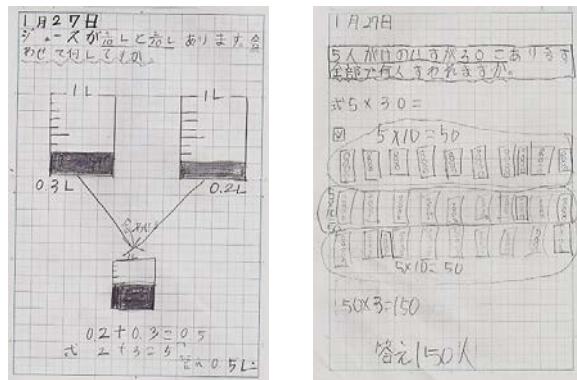 1月27日
ジュースが3/10Lと2/10Lあります。合
わせて何Lですか。
1L
1L
0.3L
0.2L
0.2+0.3=0.5
式 2+3=5
答え 0.5L
1月27日
5人がけのいすが30こあります
全部で何人すわれますか。
式5×30=
図
5×10=50
5×10=50
5×10=50
50×3=150
答え150人